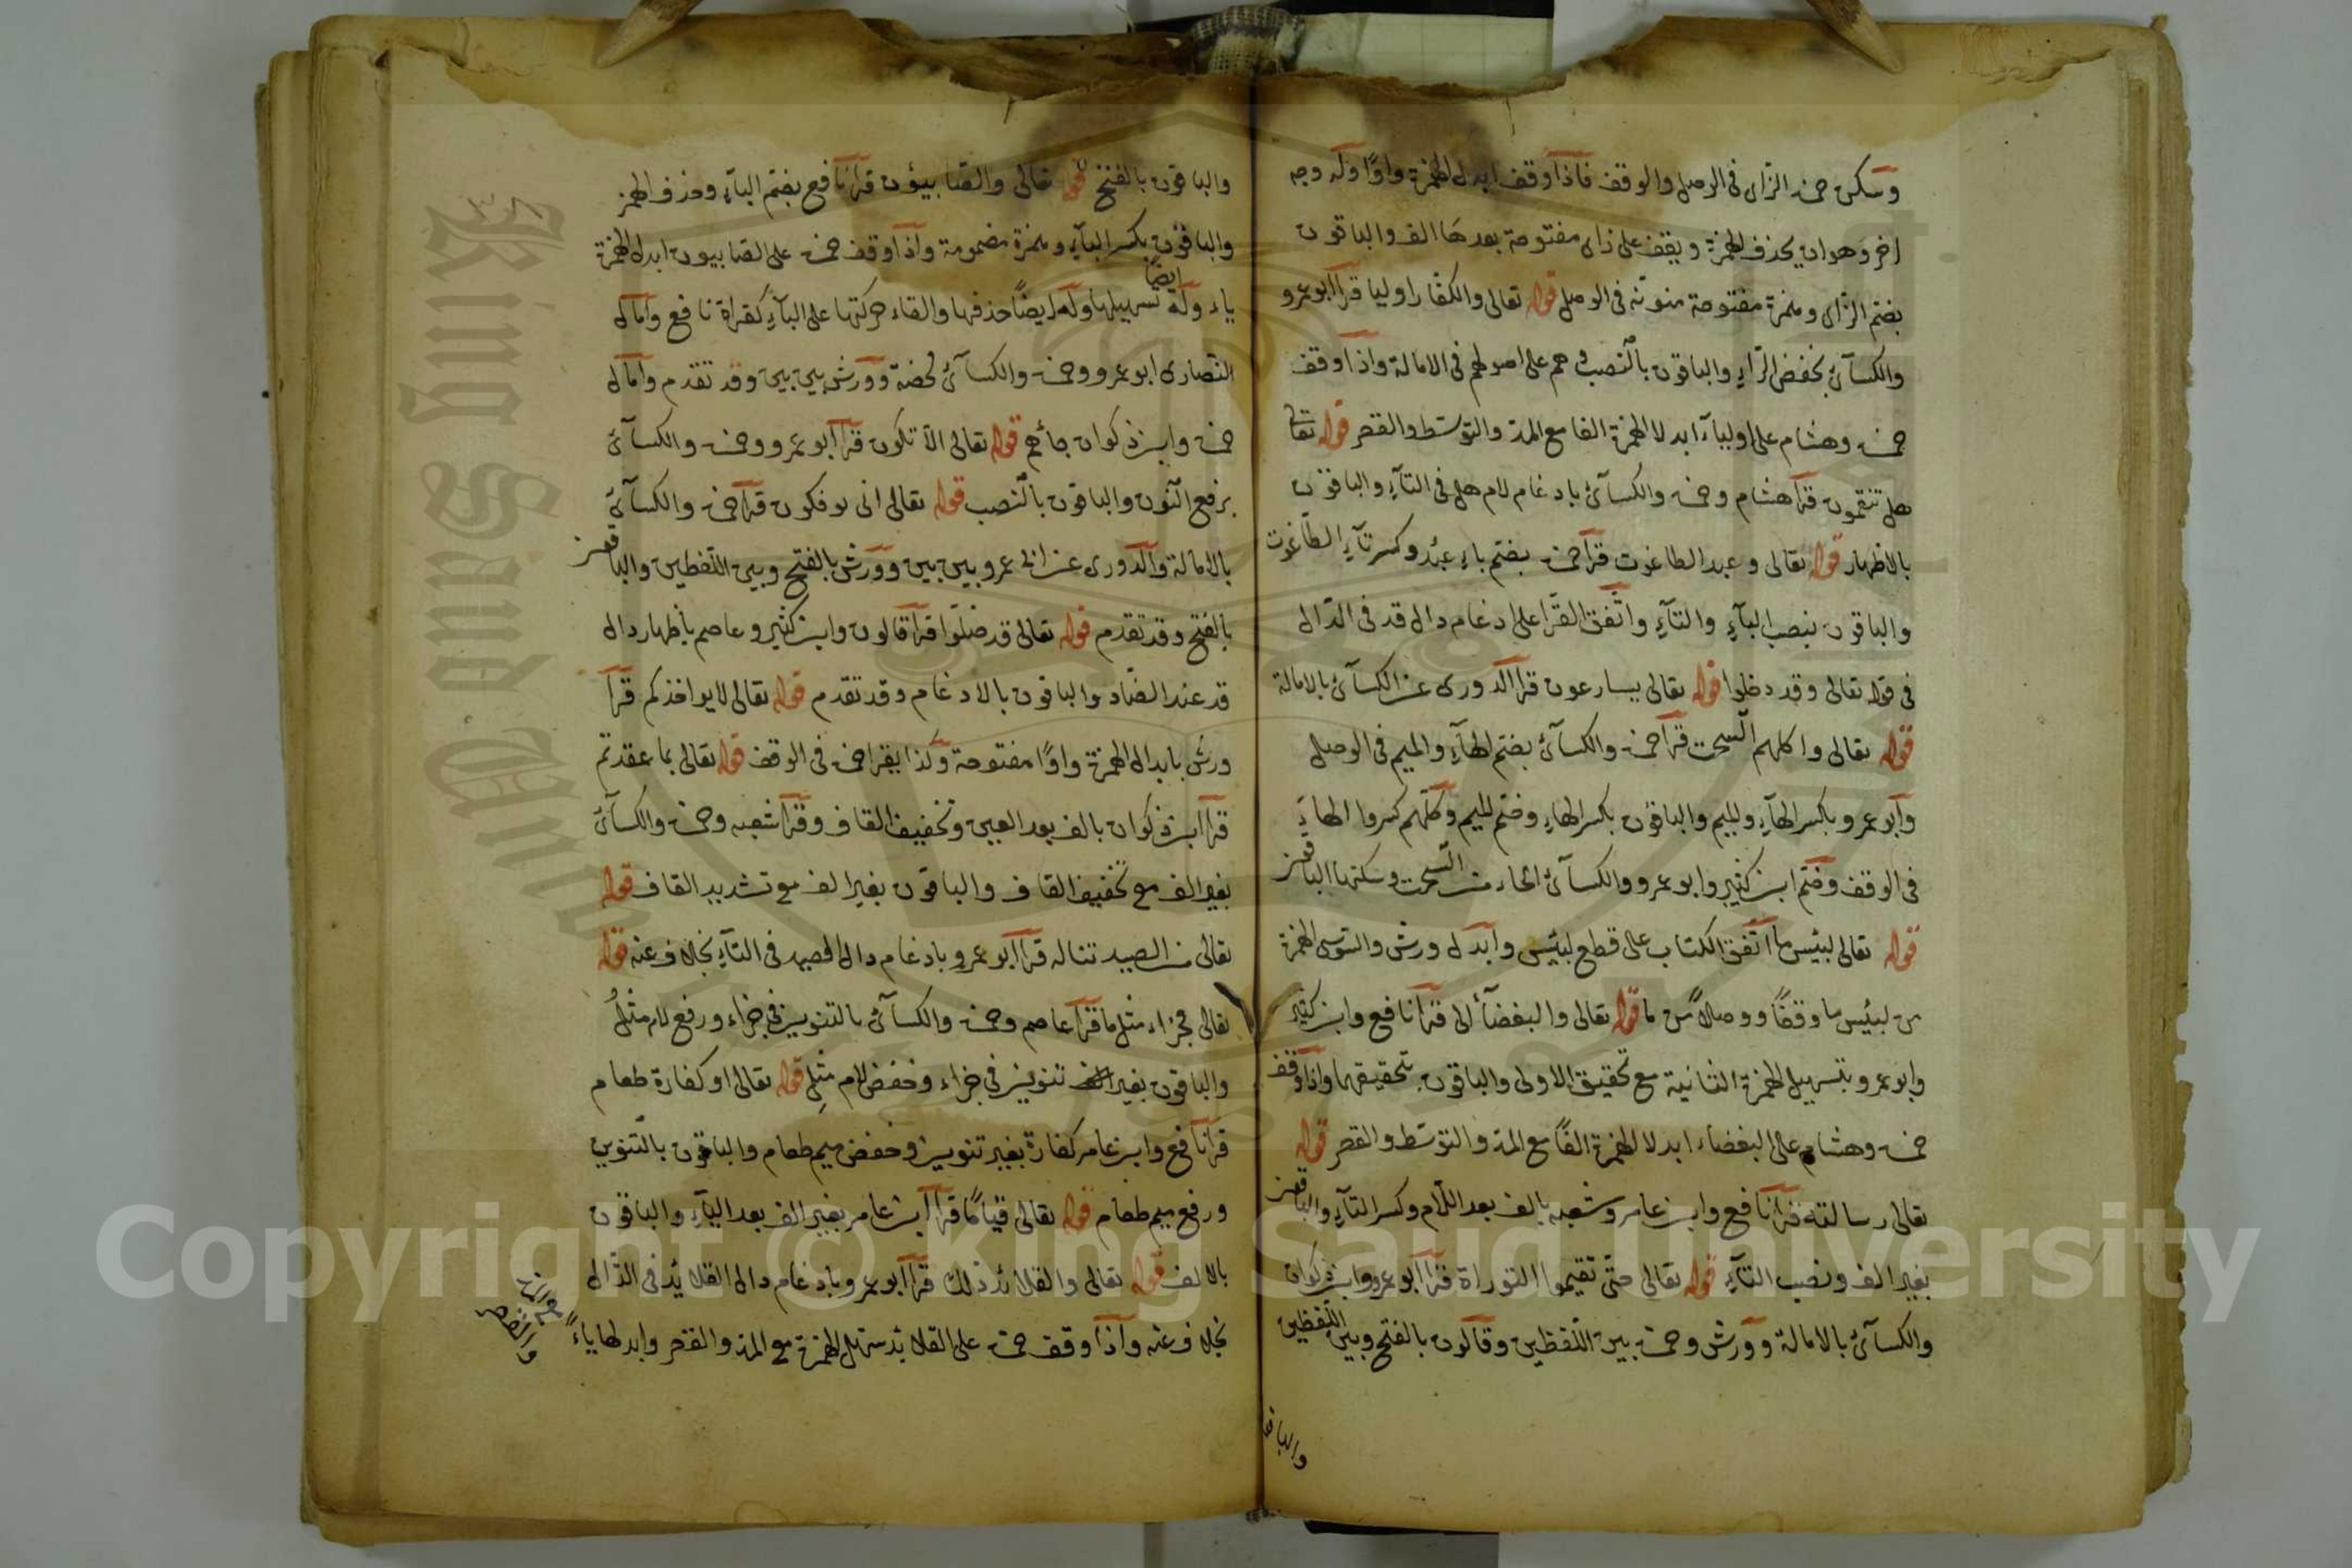 وسكن حمزة الزاى فى الوصل والوقف فاذا وقف ابدل الهمزة واوًا وله وجه
اخر وهو ان يحذف الهمزة ويقف على زاى مفتوحة بعدها الف والباقون
بضم الزاى وهمزة مفتوحة منونة فى الوصل قوله تعالى والكفار اوليا قرا ابو عمرو
والكسآئ بخفض الرآء والباقون بالنصب وهم على اصولهم فى الامالة واذا وقف
حمزة وهشام على اوليآء ابدلا الهمزة الفا مع المد والتوسط والقصر قوله تعالى
هل تنقمون قرا هشام وحمزة والكسآئ بادغام لام هل فى التآء والباقون
بالاظهار قوله تعالى وعبد الطاغوت قرا حمزة بضم باء عبد وكسر تآء الطاغوت
والباقون بنصب البآء والتآء واتفق القرا على ادغام دال قد فى الدال
فى قوله تعالى وقد دخلوا قوله تعالى يسارعون قرا الدورى عن الكسآئ بالامالة
قوله تعالى واكلهم السحت قرا حمزة والكسآئ بضم الهآء والميم فى الوصل
وابو عمرو بكسر الهآء والميم والباقون بكسر الهاء وضم الميم وكلهم كسروا الهاء
فى الوقف وضم ابن كثير وابو عمرو والكسآئ الحاء من السحت وسكنها الباقون
قوله تعالى لبئيس ما اتفق الكتاب على قطع لبئيس وابدل ورش والسوسى الهمزة
من لبئيس ما وقفًا ووصلا قوله تعالى والبغضآء الى قرا نافع وابن كثير
وابو عمرو بتسهيل الهمزة الثانية مع تحقيق الاولى والباقون بتحقيقهما واذا وقف
حمزة وهشام على البغضاء ابدلا الهمزة الفًا مع المد والتوسط والقصر قوله
تعالى رسالته قرا نافع وابن عامر وشعبه بالف بعد اللام وكسر التآء والباقون
بغير الف ونصب التآء قوله تعالى حتى تقيموا التوراة قرا ابو عمرو وابن ذكوان
والكسآئ بالامالة وورش وحمزة بين اللفظين وقالون بالفتح وبين اللفظين
والباقون
والباقون بالفتح قوله تعالى والصابيؤن قرا نافع بضم البآء وحذف الهمز
والباقون بكسر البآء وهمزة مضمومة واذا وقف حمزة على الصابيون ابدل الهمزة
ياء وله ايضا تسهيلها وله ايضًا حذفها والقاء حركتها على البآء كقراة نافع وامال
النصارى ابو عمرو وحمزة والكسآئ محضة وورش بين بين وقد تقدم وامال
حمزة وابن ذكوان جآءهم قوله تعالى الا تكون قرا ابو عمرو وحمزة والكسآئ
برفع النون والباقون بالنصب قوله تعالى انى يوفكون قرا حمزة والكسآئ
بالامالة والدورى عن ابى عمرو بين بين وورش بالفتح وبين اللفظين والباقون
بالفتح وقد تقدم قوله تعالى قد ضلوا قرا قالون وابن كثير وعاصم باظهار دال
قد عند الضاد والباقون بالادغام وقد تقدم قوله تعالى لا يواخذكم قرا
ورش بابدال الهمزة واوًا مفتوحة وكذا يقرا حمزة فى الوقف قوله تعالى بما عقدتم
قرا ابن ذكوان بالف بعد العين وتخفيف القاف وقرا شعبه وحمزة والكسآئ
بغير الف مع تخفيف القاف والباقون بغير الف مع تشديد القاف قوله
تعالى من الصيد تناله قرا ابو عمرو بادغام دال الصيد فى التآء بخلاف عنه قوله
تعالى فجزاء مثل ما قرا عاصم وحمزة والكسآئ بالتنوين فى جزاء ورفع لام مثلُ
والباقون بغير تنوين فى جزاء وخفض لام مثلِ قوله تعالى او كفارة طعام
قرا نافع وابن عامر كفارة بغير تنوين وخفض ميم طعام والباقون بالتنوين
ورفع ميم طعام قوله تعالى قيامًا قرا ابن عامر بغير الف بعد اليآء والباقون
بالالف قوله تعالى والقلائد ذلك قرا ابو عمرو بادغام دال القلائد فى الذال
بخلاف عنه واذا وقف حمزة على القلائد سهل الهمزة مع المد والقصر وابدلها ياءً
مع المد
والقصر
Copyright © King Saud University